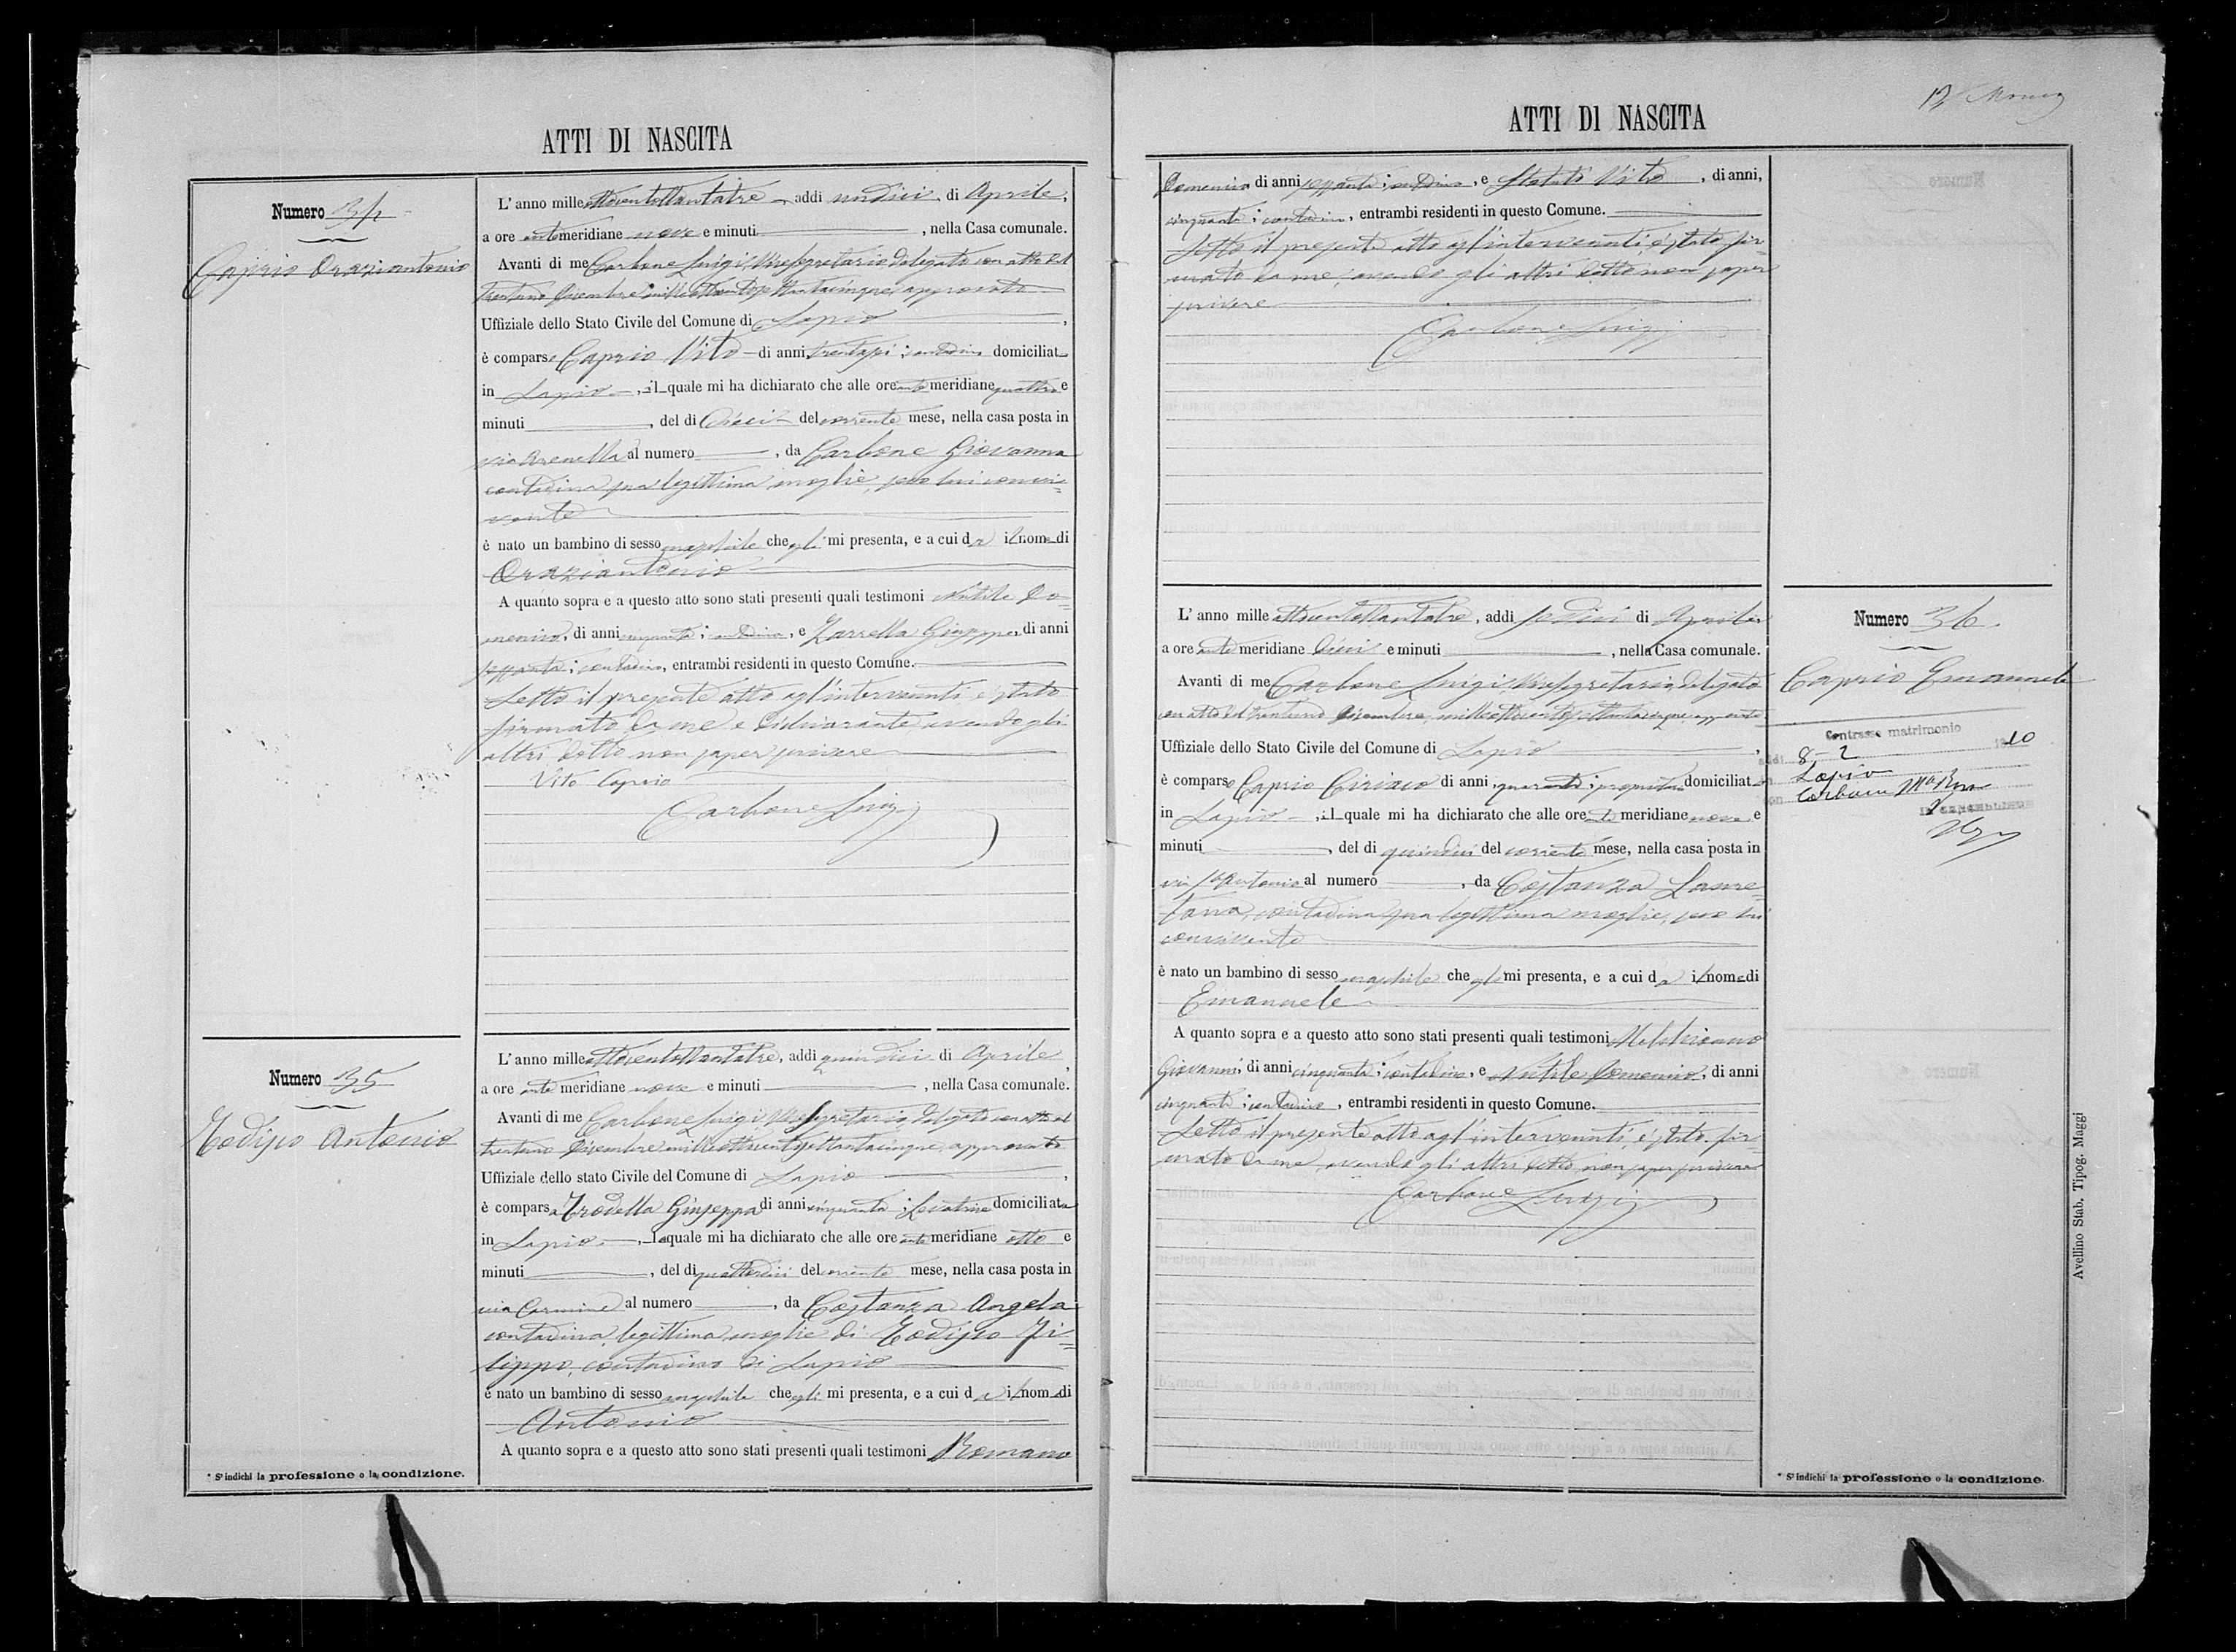 ATTI DI NASCITA
Numero 34
Caprio Oraziantonio
L'anno mille ottocentottantatre, addi undici di Aprile,
a ore antemeridiane nove e minuti , nella Casa comunale.
Avanti di me Carbone Luigi, Vicesegretario delegato con atto del
trentuno Dicembre milleottocentosettantacinque, approvato
Uffiziale dello Stato Civile del Comune di Lapio ,
è comparso Caprio Vito di anni trentasei; contadino domiciliat
in Lapio , il quale mi ha dichiarato che alle ore antemeridiane quattro e
minuti , del dì dieci del corrente mese, nella casa posta in
via Arenella al numero , da Carbone Giovanna
contadina sua legittima moglie, seco lui convi=
vente
è nato un bambino di sesso maschile che egli mi presenta, e a cui dà il nome di
Oraziantonio
A quanto sopra e a questo atto sono stati presenti quali testimoni Nutile Do=
menico, di anni cinquanta; contadino, e Zarrella Giuseppe, di anni
sessanta; contadino, entrambi residenti in questo Comune.
Letto il presente atto agl'intervenuti è stato
firmato da me e dichiarante avendo gli
altri detto non saper scrivere
Vito Caprio
Carbone Luigi
Numero 35
Todisco Antonio
L'anno mille ottocentottantatre, addi quindici di Aprile,
a ore antemeridiane nove e minuti , nella Casa comunale.
Avanti di me Carbone Luigi, Vicesegretario delegato con atto del
trentuno Dicembre milleottocentosettantacinque, approvato
Uffiziale dello stato Civile del Comune di Lapio ,
è comparsa Trodella Giuseppa di anni cinquanta; Levatrice domiciliata
in Lapio , la quale mi ha dichiarato che alle ore antemeridiane otto e
minuti , del dì quattordici del corrente mese, nella casa posta in
via Carmine al numero , da Costanza Angela
contadina, legittima moglie di Todisco Fi=
lippo, contadino di Lapio
è nato un bambino di sesso maschile che egli mi presenta, e a cui dà il nome di
Antonio
A quanto sopra e a questo atto sono stati presenti quali testimoni Romano
* S'indichi la professione o la condizione.
ATTI DI NASCITA
Domenico di anni sessanta; contadino, e Statuti Vito , di anni,
cinquanta; contadino, entrambi residenti in questo Comune.
Letto il presente atto agl'intervenuti, è stato fir=
mato da me; avendo gli altri detto non saper
scrivere
Carbone Luigi
Numero 36
Caprio Emanuele
Contrasse matrimonio
addi 8-2 1910
in Lapio
con Carbone Ma Rosa
IL CANCELLIERE
L'anno mille ottocentottantatre, addi sedici di Aprile
a ore antemeridiane dieci e minuti , nella Casa comunale.
Avanti di me Carbone Luigi, Vicesegretario, delegato
con atto del trentuno Dicembre milleottocentosettantacinque, approvato
Uffiziale dello Stato Civile del Comune di Lapio ,
è comparso Caprio Ciriaco di anni quaranta; proprietario domiciliato
in Lapio , il quale mi ha dichiarato che alle ore antemeridiane nove e
minuti , del dì quindici del corrente mese, nella casa posta in
via S. Antonio al numero , da Costanza Laure
tana, contadina sua legittima moglie, seco lui
convivente
è nato un bambino di sesso maschile che egli mi presenta, e a cui dà il nome di
Emanuele
A quanto sopra e a questo atto sono stati presenti quali testimoni Melchionno
Giovanni, di anni cinquanta; contadino, e Nutile Domenico, di anni
cinquanta; contadino, entrambi residenti in questo Comune.
Letto il presente atto agl'intervenuti, è stato fir=
mato da me avendo gli altri detto non saper scrivere
Carbone Luigi
* S'indichi la professione o la condizione.
Avellino Stab. Tipog. Maggi